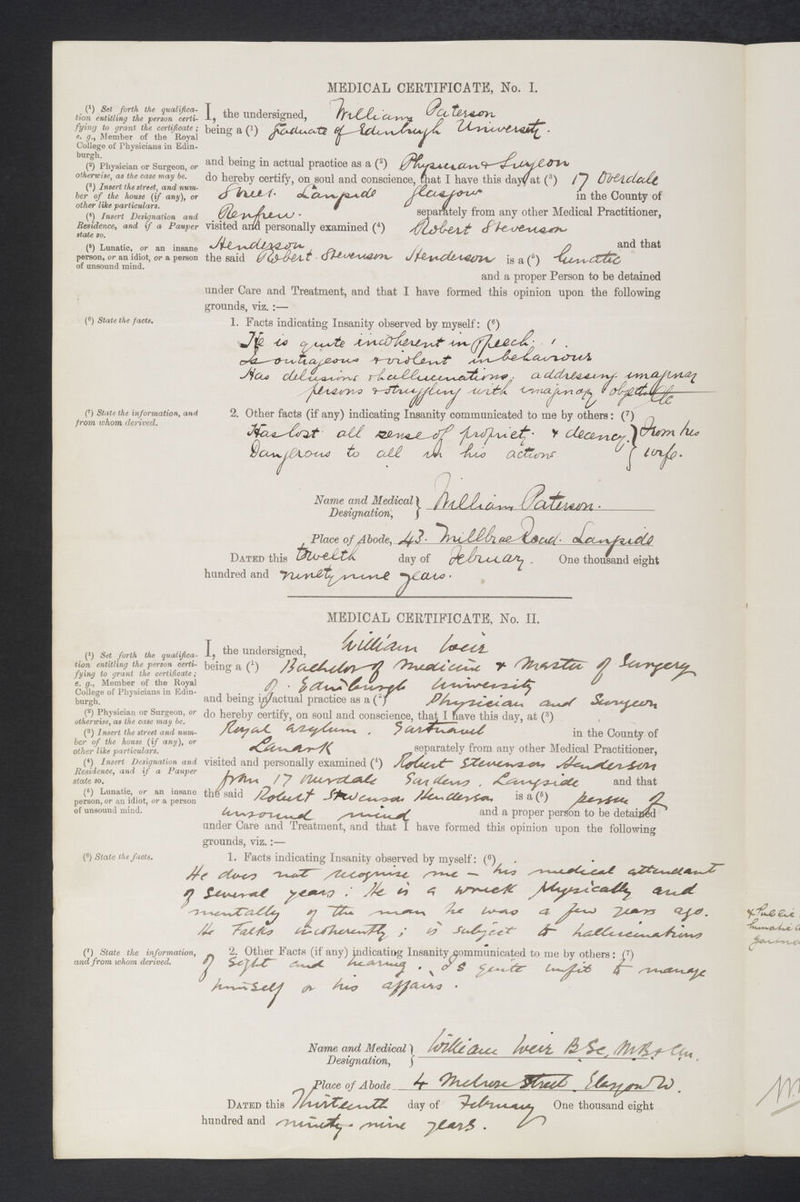 MEDICAL CERTIFICATE, No. I.
(¹) Set forth the qualifica-
tion entitling the person certi-
fying to grant the certificate;
e. g., Member of the Royal
College of Physicians in Edin-
burgh.
(²) Physician or Surgeon, or
otherwise, as the case may be.
(³) Insert the street, and num-
ber of the house (if any), or
other like particulars.
(⁴) Insert Designation and
Residence, and if a Pauper
state so.
(⁵) Lunatic, or an insane
person, or an idiot, or a person
of unsound mind.
I, the undersigned, William Paterson
being a (¹) Graduate of Edinburgh University.
and being in actual practice as a (²) Physician & Surgeon
do hereby certify, on soul and conscience, that I have this day at (³) 17 Overdale
Street. Langside Glasgow in the County of
Renfrew. separately from any other Medical Practitioner,
visited and personally examined (⁴) Robert Stevenson
Henderson and that
the said Robert Stevenson Henderson is a (⁵) Lunatic
and a proper Person to be detained
under Care and Treatment, and that I have formed this opinion upon the following
grounds, viz. :—
(⁶) State the facts.
1. Facts indicating Insanity observed by myself: (⁶)
He is quite incoherent in speech.
Is outrageous & violent in behaviour
Has delusions & hallucinations, addressing imaginary
persons & struggling with imaginary objects
(⁷) State the information, and
from whom derived.
2. Other facts (if any) indicating Insanity communicated to me by others: (⁷)
Has lost all sense of propriety & decency. } From his
Dangerous to all in his actions { wife.
Name and Medical } William Paterson.
Designation, }
Place of Abode, 43. Millbrae Road. Langside
DATED this twelfth day of February. One thousand eight
hundred and ninety nine years.
MEDICAL CERTIFICATE, No. II.
(¹) Set forth the qualifica-
tion entitling the person certi-
fying to grant the certificate;
e. g., Member of the Royal
College of Physicians in Edin-
burgh.
(²) Physician or Surgeon, or
otherwise, as the case may be.
(³) Insert the street and num-
ber of the house (if any), or
other like particulars.
(⁴) Insert Designation and
Residence, and if a Pauper
state so.
(⁵) Lunatic, or an insane
person, or an idiot, or a person
of unsound mind.
I, the undersigned, William Weir
being a (¹) Bachelor of Medicine & Master of Surgery
of Edinburgh University
and being in actual practice as a (²) Physician and Surgeon
do hereby certify, on soul and conscience, that I have this day, at (³)
Royal Asylum. Gartnavel in the County of
Lanark separately from any other Medical Practitioner,
visited and personally examined (⁴) Robert Stevenson Henderson
from 17 Overdale Gardens. Langside and that
the said Robert Stevenson Henderson is a (⁵) person of
unsound mind and a proper person to be detained
under Care and Treatment, and that I have formed this opinion upon the following
grounds, viz. :—
(⁶) State the facts.
1. Facts indicating Insanity observed by myself: (⁶)
He does not recognise me — his medical attendant
of several years: He is a wreck physically and
mentally of the man he was a few years ago.
He talks incoherently; is subject to hallucinations
(⁷) State the information,
and from whom derived.
2. Other Facts (if any) indicating Insanity communicated to me by others: (⁷)
of sight and hearing. Is quite unfit to manage
himself or his affairs.
Name and Medical } William Weir BSc, MB & Cm.
Designation, }
Place of Abode 4 Melrose Street. Glasgow W.
DATED this Thirteenth day of February One thousand eight
hundred and ninety-nine years.